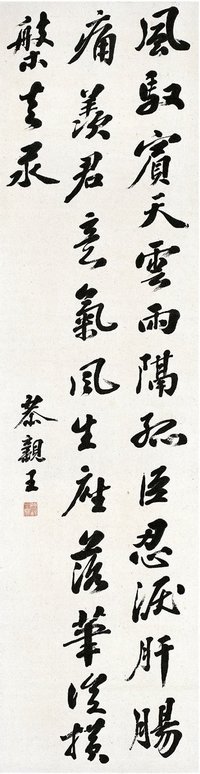 風馭賓天雲雨隔孤臣忍淚肝腸
痛羨君意氣風生座落筆從橫
槃走汞
恭親王